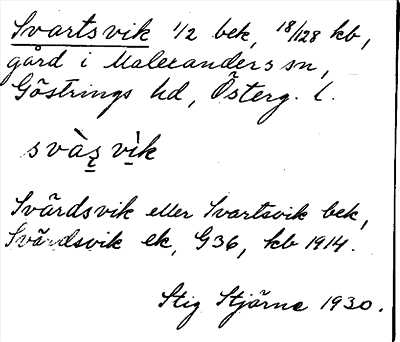 Svartsvik 1/2 bek, 18/128 kb,
gård i Malexanders sn,
Göstrings hd, Österg. l.
svàṣ vìk
Svärdsvik eller Svartsvik bek,
Svärdsvik ek, G36, kb 1914.
Stig Stjärne 1930.